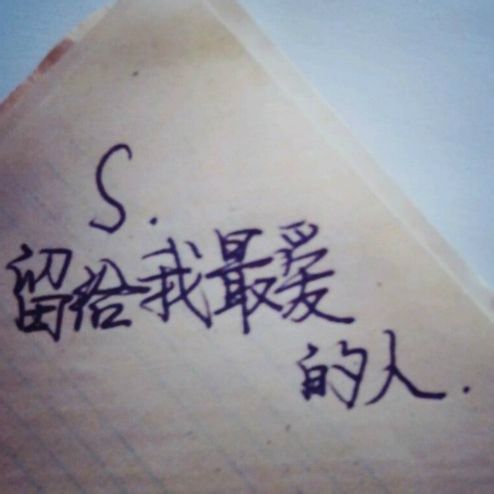 S.
留给我最爱
的人.